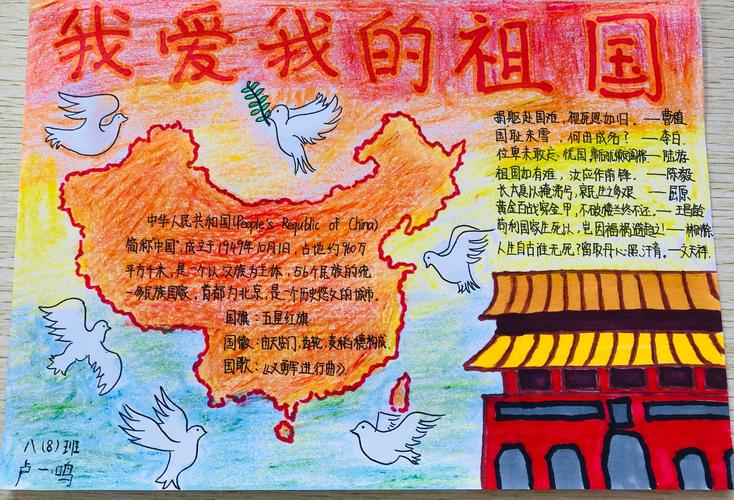 我爱我的祖国
捐躯赴国难，视死忽如归。——曹植
国耻未雪，何由成名？——李白
位卑未敢忘忧国，——陆游
祖国如有难，汝应作前锋。——陈毅
长太息以掩涕兮，哀民生之多艰——屈原
黄金百战穿金甲，不破楼兰终不还。——王昌龄
苟利国家生死以，岂因祸福避趋之！——林则徐
人生自古谁无死？留取丹心照汗青。——文天祥
中华人民共和国(People's Republic of China)
简称中国"，成立于1949年10月1日，占地约960万
平方千米，是一个以汉族为主体，56个民族的统
一多民族国家，首都为北京，是一个历史悠久的城市。
国旗：五星红旗
国徽：由天安门，齿轮，麦稻穗构成
国歌：《义勇军进行曲》
八(8)班
卢一鸣